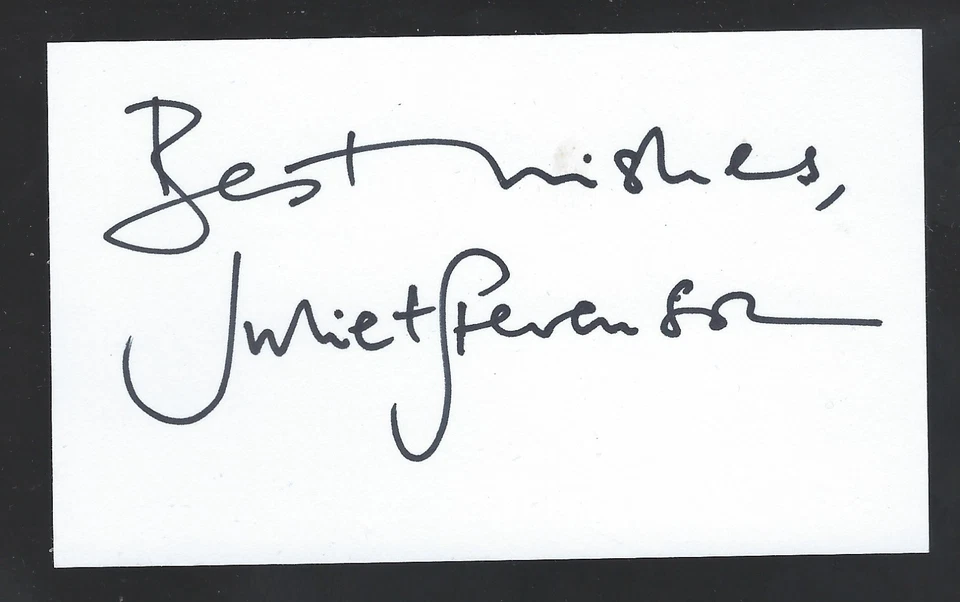 Best wishes,
Juliet Stevenson